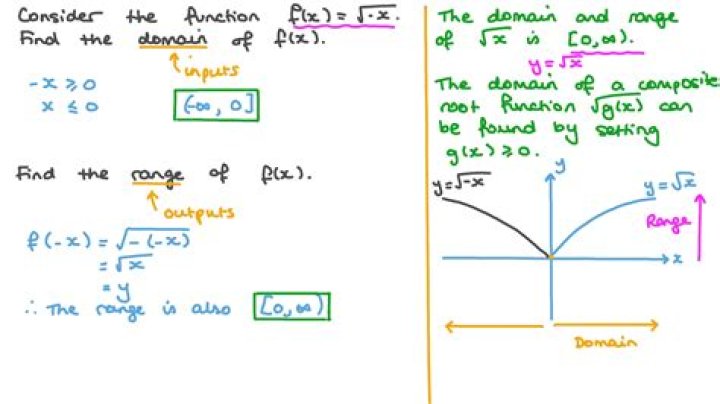 Consider the function f(x) = √-x.
Find the domain of f(x).
inputs
-x ≥ 0
x ≤ 0
(-∞, 0]
Find the range of f(x).
outputs
f(-x) = √-(-x)
= √x
= y
∴ The range is also [0, ∞)
The domain and range
of √x is [0, ∞).
y = √x
The domain of a composite
root function √g(x) can
be found by setting
g(x) ≥ 0.
y
y = √-x
y = √x
Range
x
Domain